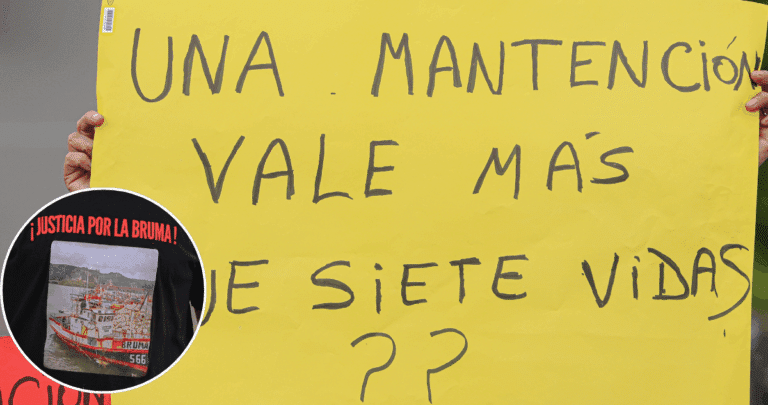 UNA. MANTENCIÓN
VALE MÁS
UE SIETE VIDAS
??
¡JUSTICIA POR LA BRUMA!
BRUMA
566
ACIÓN